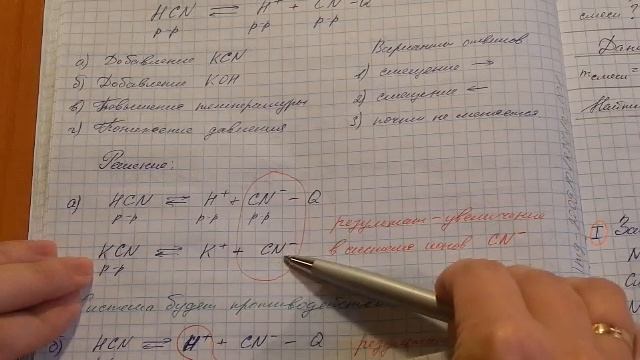 HCN ⇌ H⁺ + CN⁻ - Q
р-р р-р р-р
а) Добавление KCN
б) Добавление KOH
в) Повышение температуры
г) Понижение давления
Варианты ответов
1) смещение →
2) смещение ←
3) почти не меняется
Решение:
а) HCN ⇌ H⁺ + CN⁻ - Q
р-р р-р р-р
KCN ⇌ K⁺ + CN⁻
р-р
результат - увеличение
в системе ионов CN⁻
система будет противодейств
б) HCN ⇌ H⁺ + CN⁻ - Q
смеси ?
Дано
m смеси =
Найти
I За